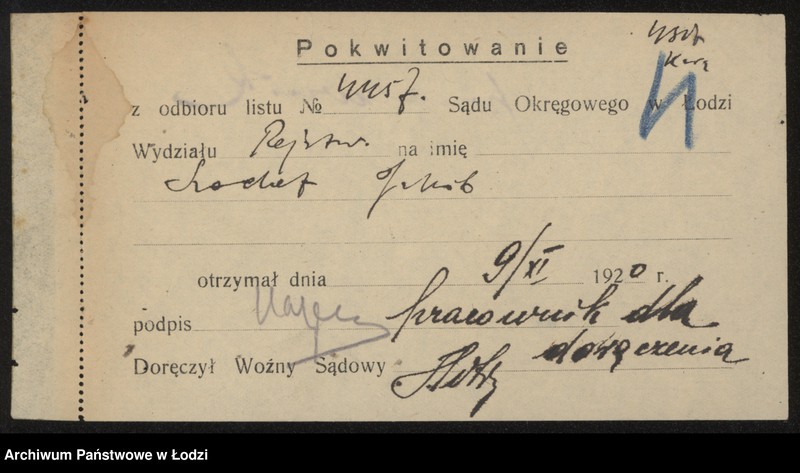 Pokwitowanie
z odbioru listu № 4457. Sądu Okręgowego w Łodzi
Wydziału Rejstr. na imię
Jakób
otrzymał dnia 9/XI 1920 r.
podpis pracownik dla
doręczenia
Doręczył Woźny Sądowy
Archiwum Państwowe w Łodzi